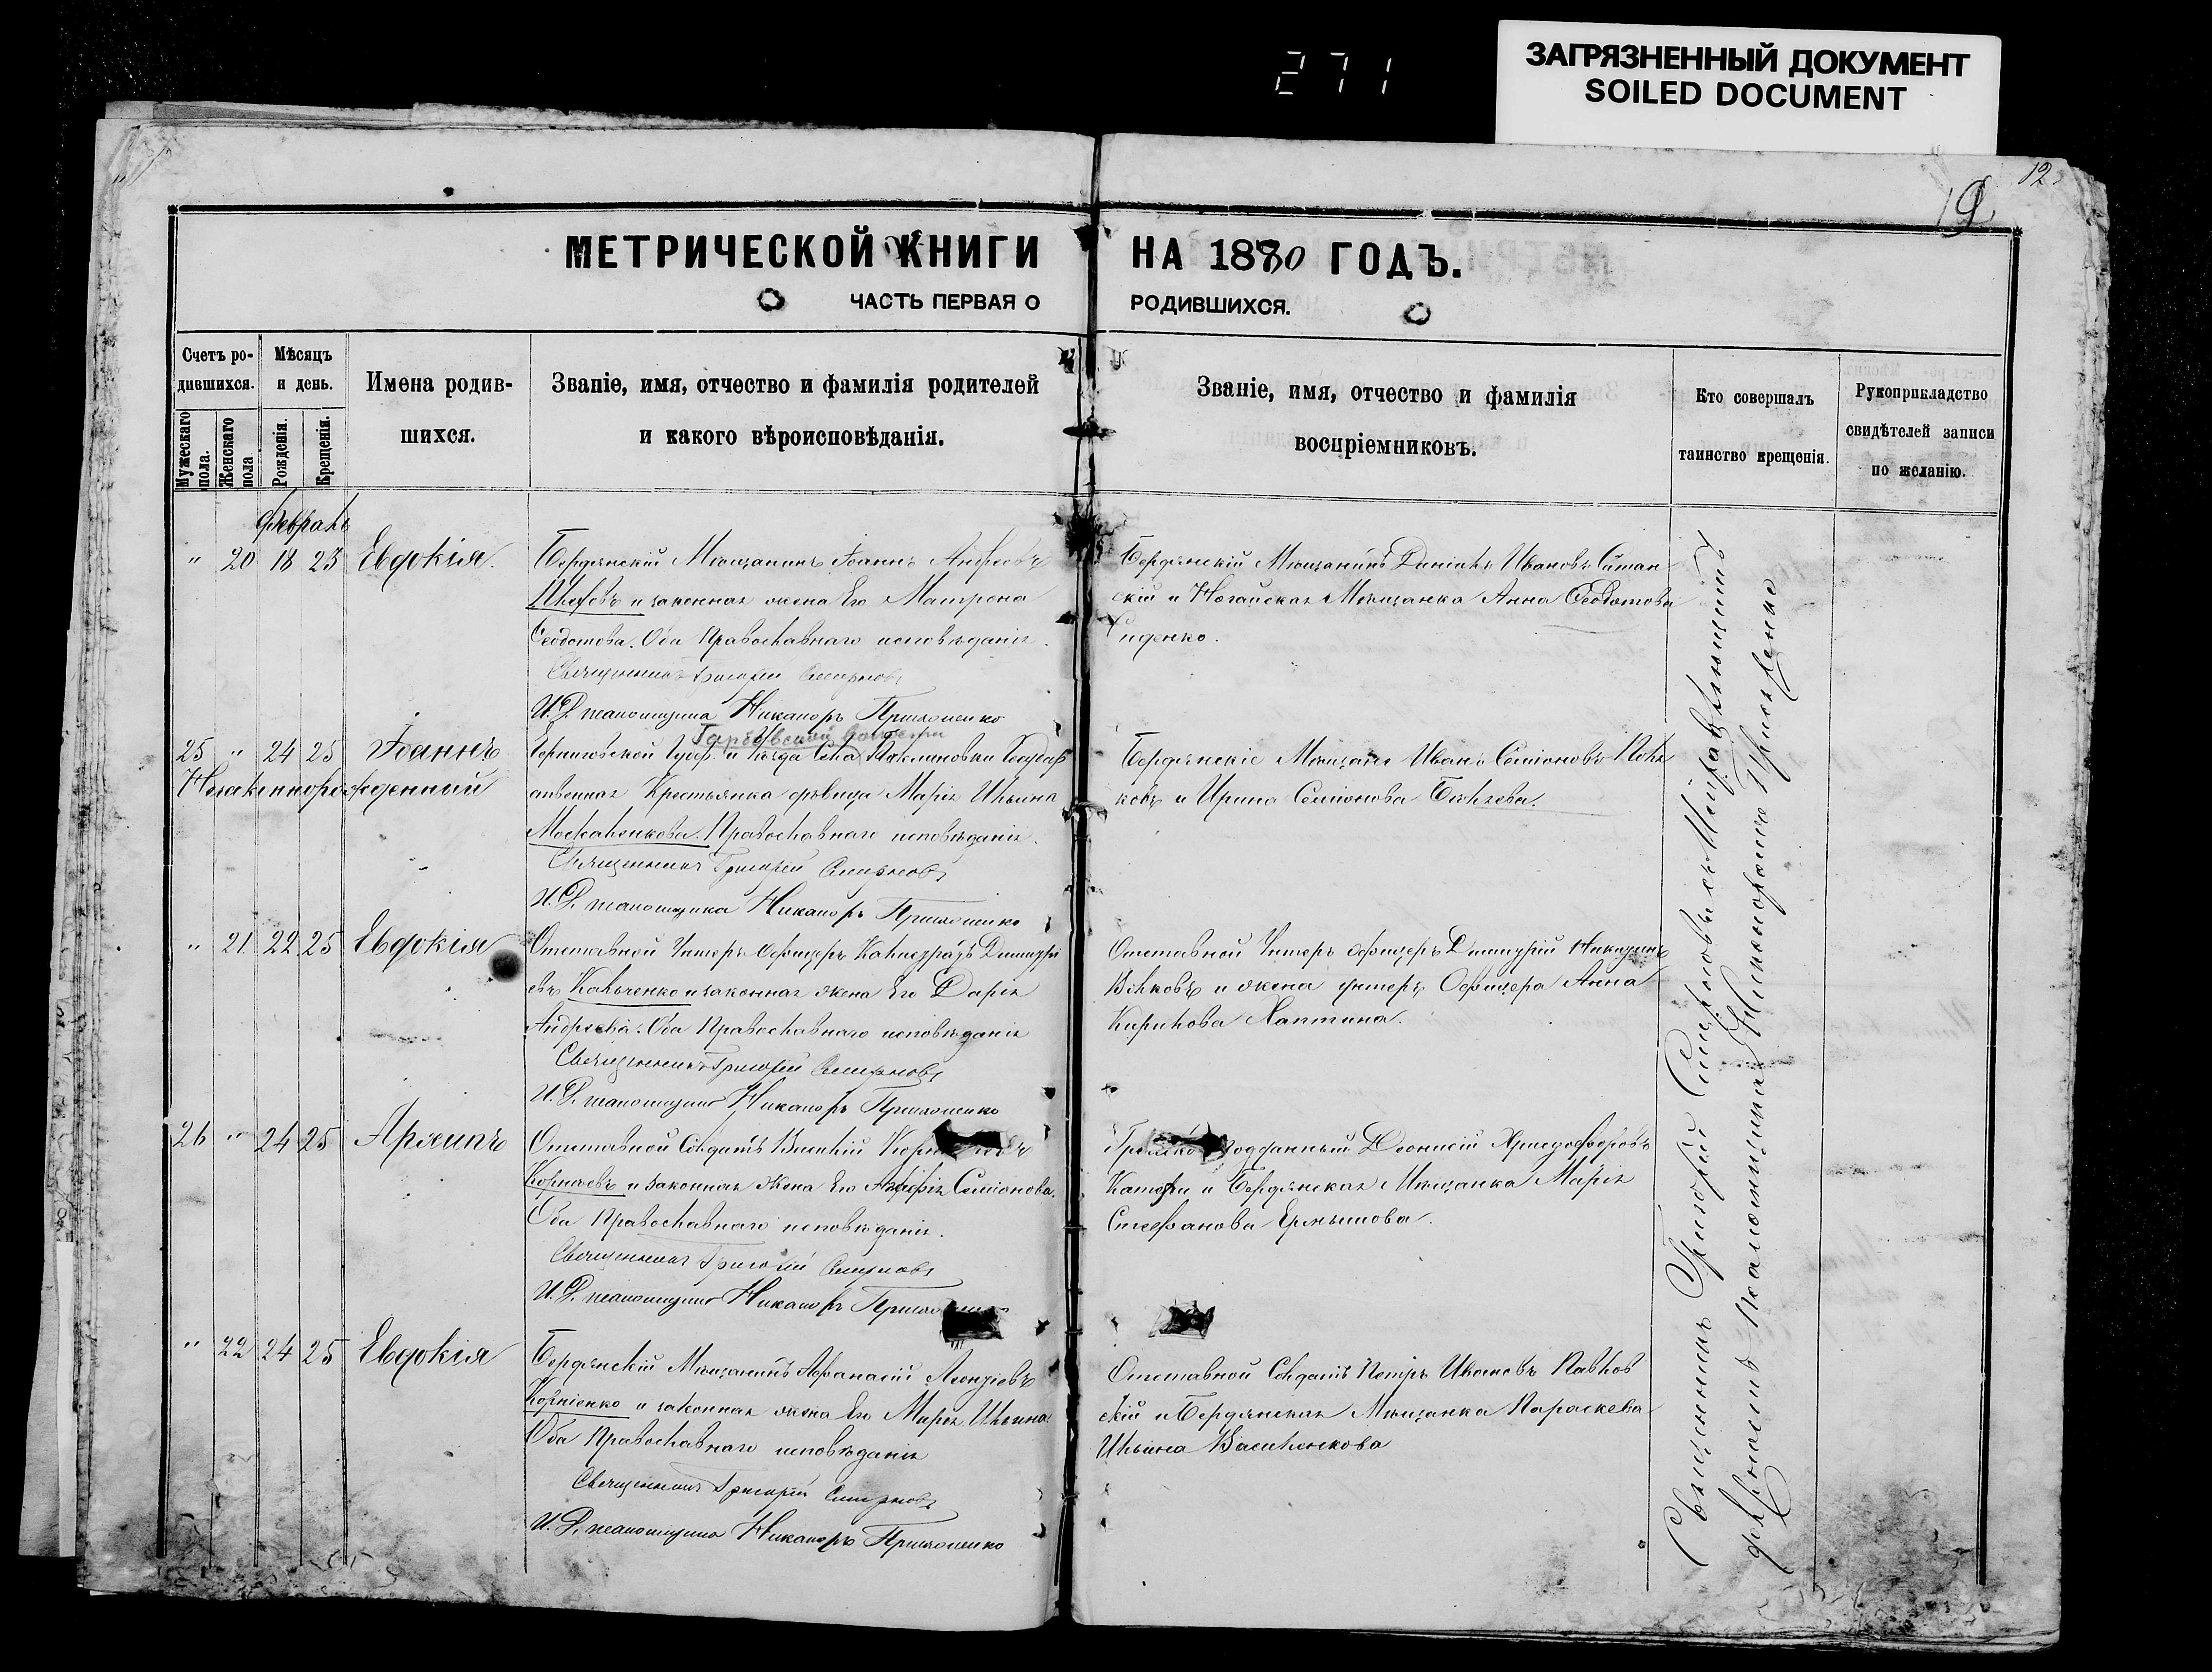 271
ЗАГРЯЗНЕННЫЙ ДОКУМЕНТ
SOILED DOCUMENT
12
19
МЕТРИЧЕСКОЙ КНИГИ НА 1880 ГОДЪ.
ЧАСТЬ ПЕРВАЯ О РОДИВШИХСЯ.
Счетъ родившихся.
Мужескаго пола.
Женскаго пола
Мѣсяцъ и день.
Рожденія.
Крещенія.
Имена родившихся.
Званіе, имя, отчество и фамилія родителей
и какого вѣроисповѣданія.
Званіе, имя, отчество и фамилія
воспріемниковъ.
Кто совершалъ
таинство крещенія.
Рукоприкладство
свидѣтелей записи
по желанію.
Февраль
" 20 18 23 Евдокія.
Бердянскій Мѣщанинъ Іоаннъ Андреевъ
и законная жена Его Матрона
Ѳеодотова. Оба Православнаго исповѣданія.
Священникъ Григорій Смирновъ
И. Д. псаломщика Никаноръ
Бердянскій Мѣщанинъ Ивановъ
скій и Ногайская Мѣщанка Анна Ѳеодотова
25 " 24 25 Іоаннъ
Незаконнорожденный
Черниговской Губер. и уѣзда Села
ственная Крестьянка дѣвица Марія Ильина
Москаленкова. Православнаго исповѣданія.
Священникъ Григорій Смирновъ
И. Д. псаломщика Никаноръ
Бердянскіе Мѣщане Иванъ Семіоновъ
ковъ и Ирина Семіонова
" 21 22 25 Евдокія
Отставной Унтеръ Офицеръ Калистратъ Димитрі
евъ Кальченко и законная жена Его Дарія
Андреева. Оба Православнаго исповѣданія
Священникъ Григорій Смирновъ
И. Д. псаломщика Никаноръ
Отставной Унтеръ Офицеръ Димитрій Никитинъ
Волковъ и жена унтеръ Офицера Анна
Кирилова Лаптина.
26 " 24 25 Архипъ
Отставной Солдатъ Василій
Корнѣевъ и законная жена Его Семіонова.
Оба Православнаго исповѣданія.
Священникъ Григорій Смирновъ
И. Д. псаломщика Никаноръ
подданный Діонисій Христофоровъ
и Бердянская Мѣщанка Марія
Стефанова
" 22 24 25 Евдокія
Бердянскій Мѣщанинъ Афанасій Леонтіевъ
Корніенко и законная жена Его Марія Ильина
Оба Православнаго исповѣданія
Священникъ Григорій Смирновъ
И. Д. псаломщика Никаноръ
Отставной Солдатъ Петръ Ивановъ Павлов
скій и Бердянская Мѣщанка Параскева
Ильина Василенкова
Священникъ Григорій Смирновъ съ Исправляющимъ
должность Псаломщика Никаноромъ